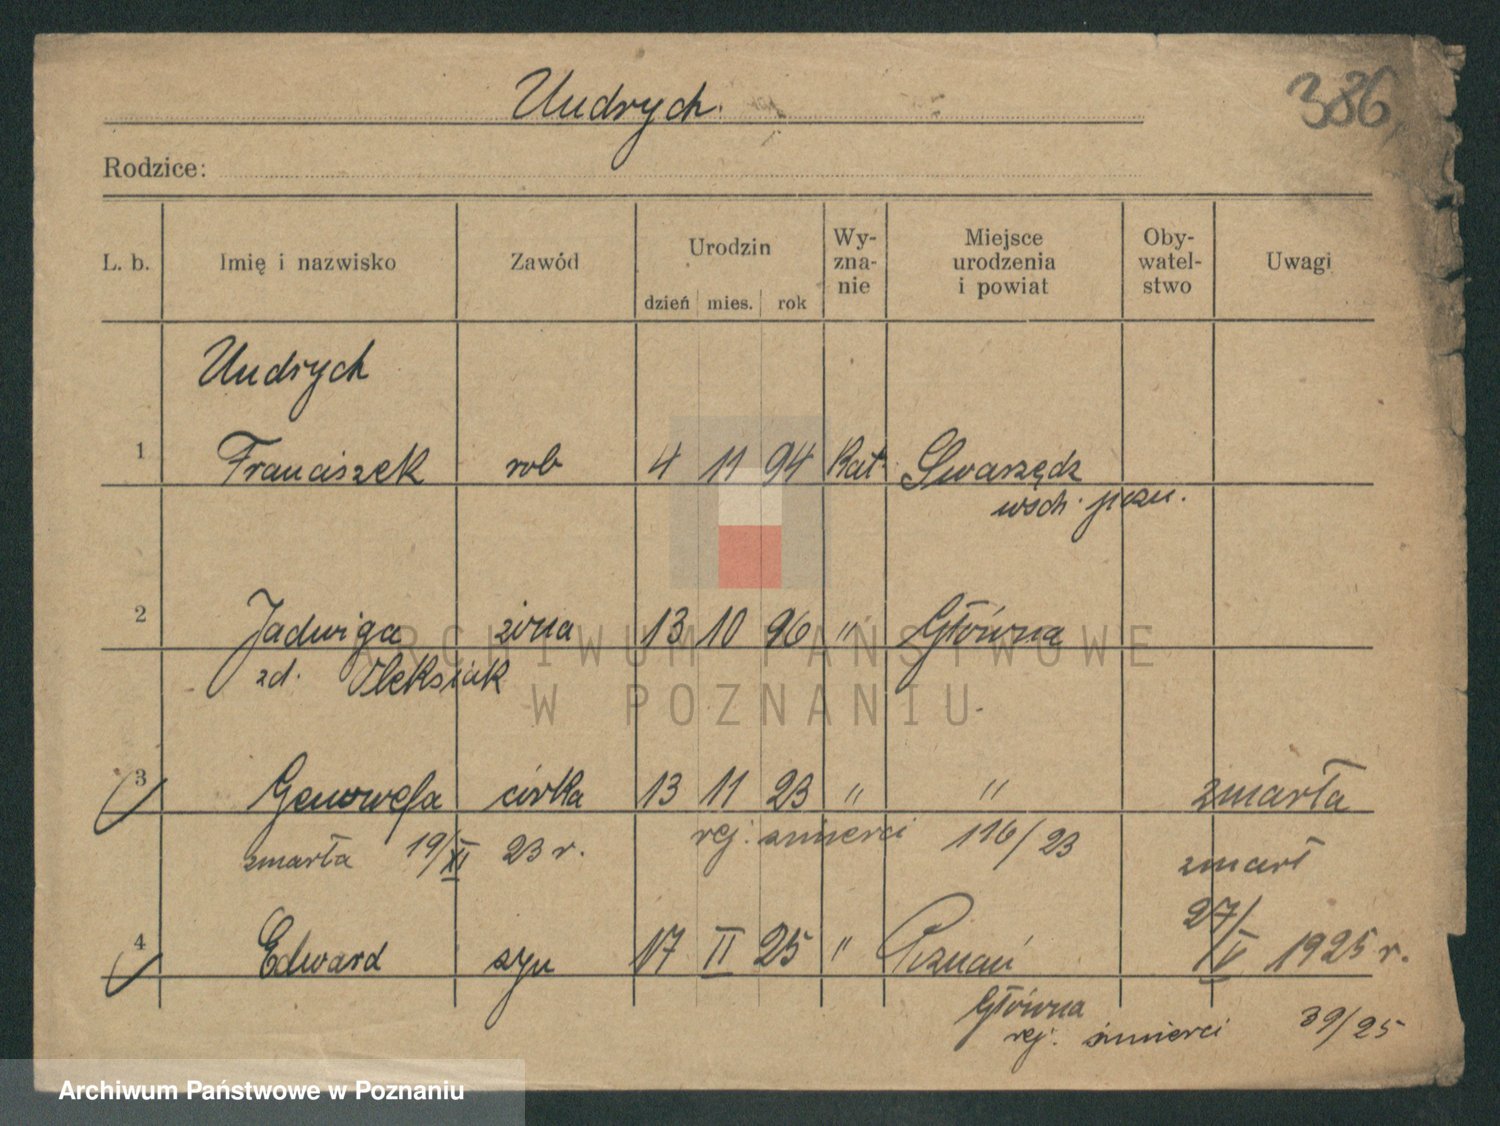 Undrych.
386
Rodzice:
L. b. Imię i nazwisko Zawód Urodzin dzień mies. rok Wy-zna-nie Miejsce urodzenia i powiat Oby-watel-stwo Uwagi
Undrych
1 Franciszek rob 4 11 94 Kat. Swarzędz
wsch. pozn.
2 Jadwiga żona 13 10 96 " Główna
zd. Oleksiak
3 Genowefa córka 13 11 23 " " zmarła
zmarła 19/XI 23 r. rej. śmierci 116/23 zmarł
27/V 1925 r.
4 Edward syn 17 II 25 " Poznań
Główna
rej. śmierci 39/25
ARCHIWUM PAŃSTWOWE
W POZNANIU
Archiwum Państwowe w Poznaniu